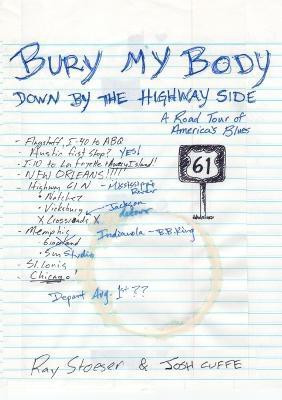 BURY MY BODY
DOWN BY THE HIGHWAY SIDE
A Road Tour of
America's Blues
- Flagstaff, I-40 to ABQ
Austin first stop? YES!
- I-10 to La Fayette + Avery Island!
- NEW ORLEANS!!!!
- Highway 61 N - Mississippi River
• Natchez
• Vicksburg - Jackson detour
X Crossroads X
- Memphis
• Graceland
• Sun Studio
Indianola - B.B. King
- St. Louis
- Chicago!
61
Depart Aug. 1st ??
Ray Stoeser & Josh Cuffe